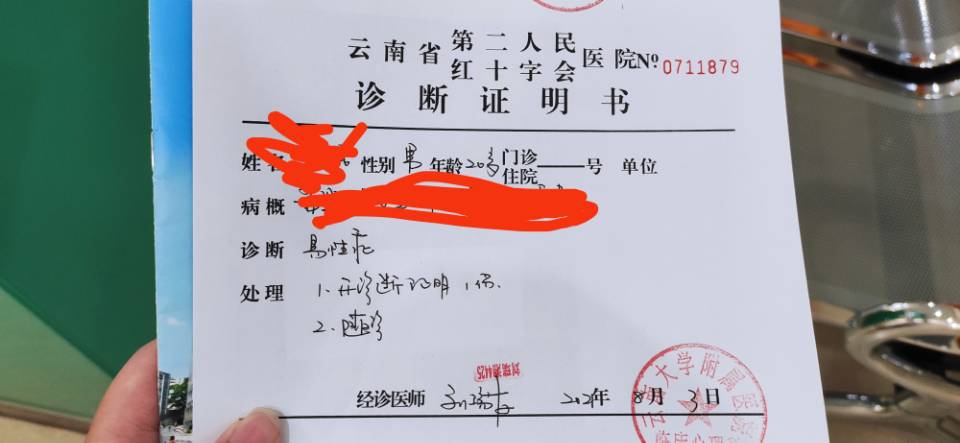 云南省 第二人民 医院 Nº 0711879
红十字会
诊断证明书
姓名 性别 男 年龄 20岁 门诊 住院 号 单位
病概
诊断 易性症
处理 1.开诊断证明1份.
2.随诊
经诊医师 年8月3日
大学附属医院
临床心理